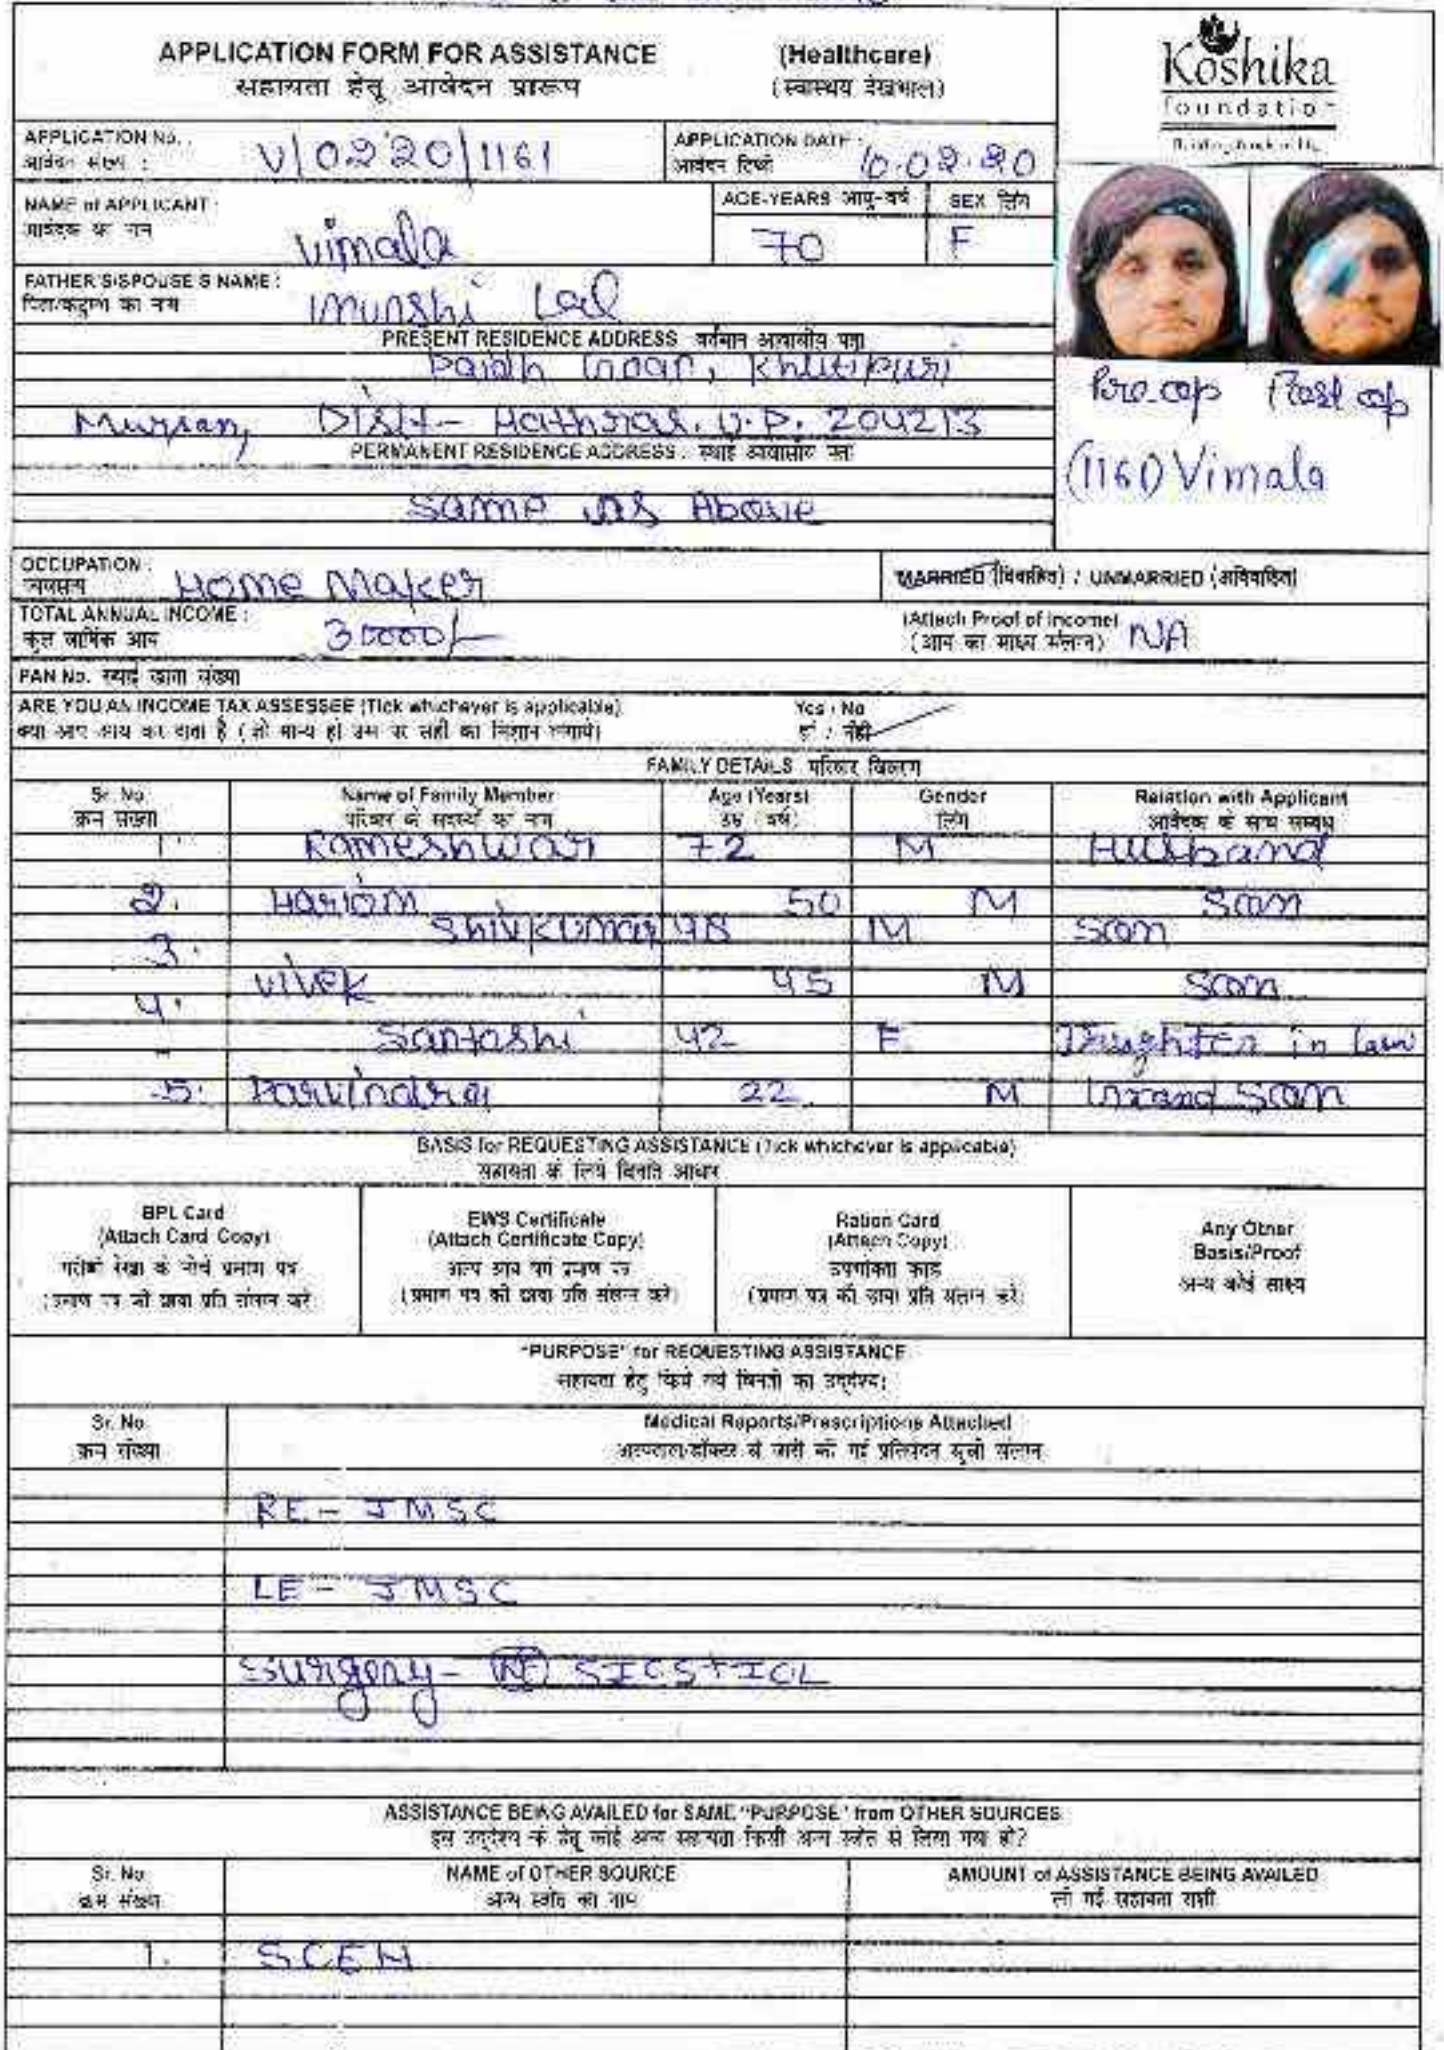 APPLICATION FORM FOR ASSISTANCE (Healthcare)
सहायता हेतू आवेदन प्रारूप (स्वास्थय देखभाल)
Koshika
foundation
APPLICATION No. :
आवेदन संख्या :
V/0220/1161
APPLICATION DATE :
आवेदन तिथी
10.02.20
NAME of APPLICANT :
आवेदक का नाम
Vimala
AGE-YEARS आयु-वर्ष
70
SEX लिंग
F
FATHER'S/SPOUSE'S NAME :
Munshi Lal
PRESENT RESIDENCE ADDRESS वर्तमान आवासीय पता
Khutipuri
Mursan, Distt- Hathras. U.P. 204213
PERMANENT RESIDENCE ADDRESS : स्थाई आवासीय पता
Same as Above
Pre op Post op
(1161) Vimala
OCCUPATION :
व्यवसाय
Home Maker
MARRIED (विवाहित) / UNMARRIED (अविवाहित)
TOTAL ANNUAL INCOME :
कुल वार्षिक आय
30000/-
(Attach Proof of Income)
(आय का साक्ष्य संलग्न) NA
PAN No. स्थाई खाता संख्या
ARE YOU AN INCOME TAX ASSESSEE (Tick whichever is applicable) Yes / No
क्या आप आय कर दाता है (जो मान्य हो उस पर सही का निशान लगाये) हाँ / नहीं
FAMILY DETAILS परिवार विवरण
Sr. No. Name of Family Member Age (Years) Gender Relation with Applicant
क्रम संख्या परिवार के सदस्यों का नाम उम्र (वर्ष) लिंग आवेदक के साथ सम्बंध
1. Rameshwar 72 M Husband
2. Hariom 50 M Son
3. Shivkumar 48 M Son
4. Vivek 45 M Son
Santoshi 42 F Daughter in law
5. Parvindra 22 M Grand Son
BASIS for REQUESTING ASSISTANCE (Tick whichever is applicable)
सहायता के लिये विनति आधार
BPL Card
(Attach Card Copy)
गरीबी रेखा के नीचे प्रमाण पत्र
(प्रमाण पत्र की छाया प्रति संलग्न करें)
EWS Certificate
(Attach Certificate Copy)
अल्प आय वर्ग प्रमाण पत्र
(प्रमाण पत्र की छाया प्रति संलग्न करें)
Ration Card
(Attach Copy)
उपभोक्ता कार्ड
(प्रमाण पत्र की छाया प्रति संलग्न करें)
Any Other
Basis/Proof
अन्य कोई साक्ष्य
"PURPOSE" for REQUESTING ASSISTANCE
सहायता हेतु किये गये विनती का उद्देश्य:
Sr. No. Medical Reports/Prescriptions Attached
क्रम संख्या अस्पताल/डॉक्टर से जारी की गई प्रतिवेदन सूची संलग्न
RE - JMSC
LE - JMSC
Surgery - RE SICS + IOL
ASSISTANCE BEING AVAILED for SAME "PURPOSE" from OTHER SOURCES
इस उद्देश्य के हेतू कोई अन्य सहायता किसी अन्य स्त्रोत से लिया गया हो?
Sr. No. NAME of OTHER SOURCE AMOUNT of ASSISTANCE BEING AVAILED
क्रम संख्या अन्य स्त्रोत का नाम ली गई सहायता राशी
1. SCEH